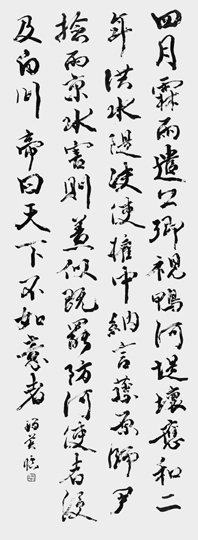 四月霖雨遣公卿視鴨河堤壞應和二
年洪水堤決使權中納言藤原師尹
撿兩京水害則蓋似既罷防河使者後
及白川帝曰天下不如意者